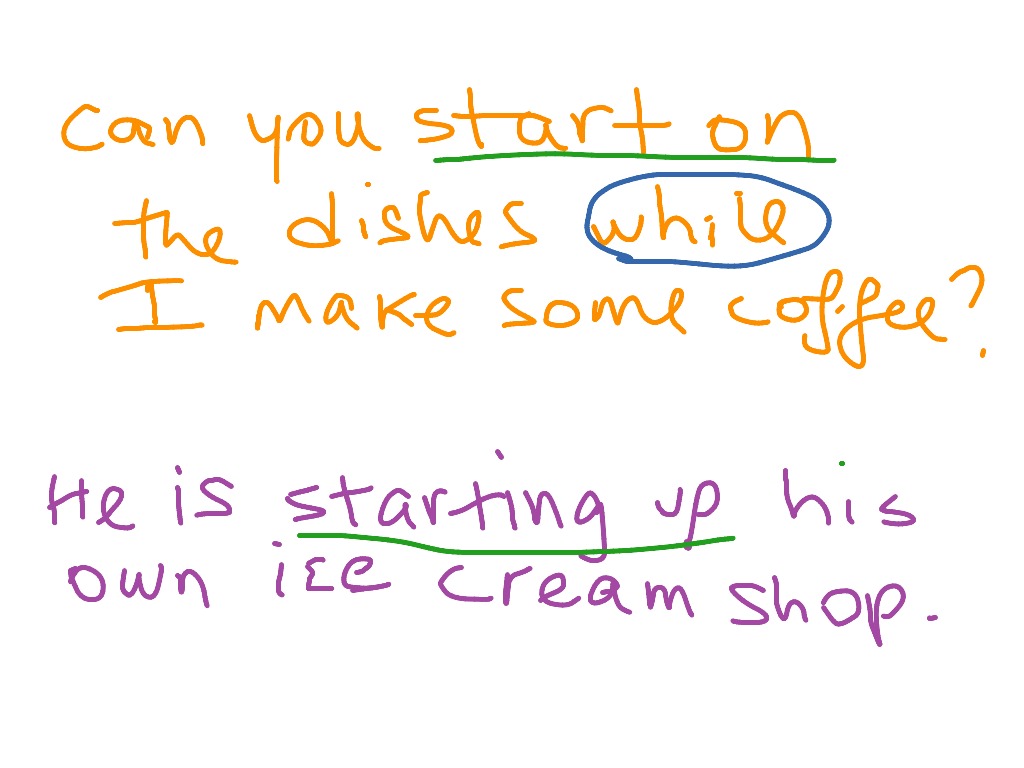 Can you start on
the dishes while
I make some coffee?
He is starting up his
own ice cream shop.